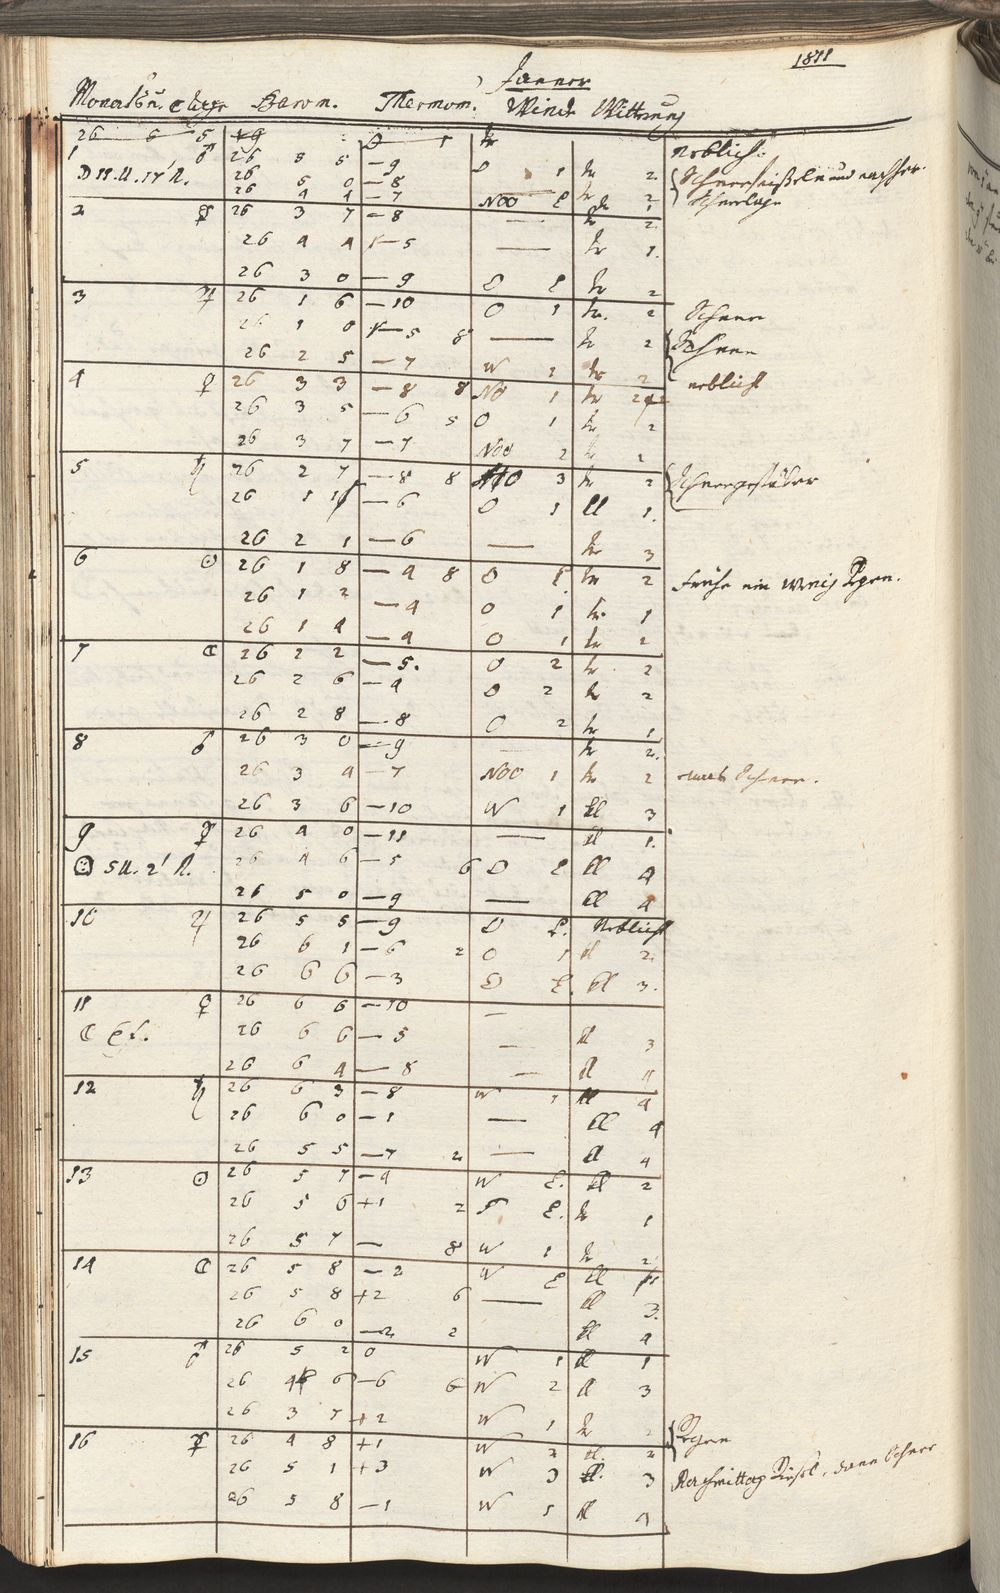 1811
Jannor
Monats u. Tage Barom. Thermom. Wind Wittrung
26 5 5 +9 O 1 tr neblicht.
1 ♂ 26 5 5 —9 O 1 tr 2
D 11. U. 17' N. 26 5 0 —8 tr 2 und nachher
26 4 4 —7 NOO tr 1
2 ☿ 26 3 7 —8 — tr 2
26 4 4 —5 — tr 1.
26 3 0 —9 O tr 2
3 ♃ 26 1 6 —10 O 1 tr. 2 Schnee
26 1 0 —5 8 — tr 2 Schnee
26 2 5 —7 W 2 tr 2
4 ♀ 26 3 3 —8 8 NO 1 tr 2 neblicht
26 3 5 —6 5 O 1 tr 2
26 3 7 —7 NOO 2 tr 2
5 ♄ 26 2 7 —8 8 NO 3 tr 2 Schneegestöber
26 1 —6 O 1 ll 1.
26 2 1 —6 — tr 3
6 ☉ 26 1 8 —4 8 O tr 2 Frühe ein wenig Regen.
26 1 2 —4 O 1 tr. 1
26 1 4 —4 O 1 tr 2
7 ☾ 26 2 2 —5. O 2 tr 2
26 2 6 —4 O 2 tr 2
26 2 8 —8 O 2 tr 1
8 ♂ 26 3 0 —9 — tr 2.
26 3 4 —7 NOO 1 tr 2 etwas Schnee.
26 3 6 —10 W 1 ll 3
9 ☿ 26 4 0 —11 — ll 1.
5 U. 2' N. 26 4 6 —5 6 O ll 4
26 5 0 —9 — ll 4
10 ♃ 26 5 5 —9 O Neblicht
26 6 1 —6 2 O 1 ll 2.
26 6 6 —3 O ll 3.
11 ♀ 26 6 6 —10 —
☾ 26 6 6 —5 — ll 3
26 6 4 —8 — ll 4
12 ♄ 26 6 3 —8 W 1 ll 4
26 6 0 —1 — ll 4
26 5 5 —7 2 — ll 4
13 ☉ 26 5 7 —4 W ll 2
26 5 6 +1 2 tr 1
26 5 7 — 8 W 1 tr 2
14 ☾ 26 5 8 —2 W ll
26 5 8 +2 6 — ll 3.
26 6 0 —2 2 ll 4
15 ♂ 26 5 2 0 W 1 ll 1
26 4 6 —6 6 W 2 ll 3
26 3 7 +2 W 1 tr 2
16 ☿ 26 4 8 +1 W 2 tl. 2 Regen
26 5 1 +3 W 3 ll. 3 Nachmittag dann Schnee
26 5 8 —1 W 1 ll 4